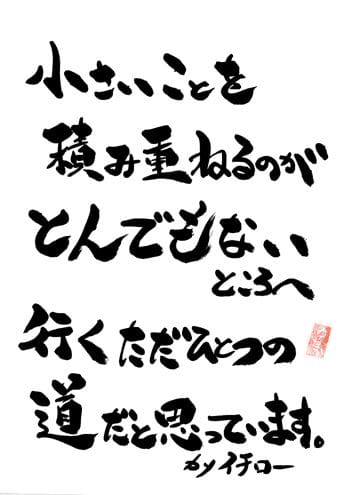 小さいことを
積み重ねるのが
とんでもない
ところへ
行くただひとつの
道だと思っています。
カノイチロー